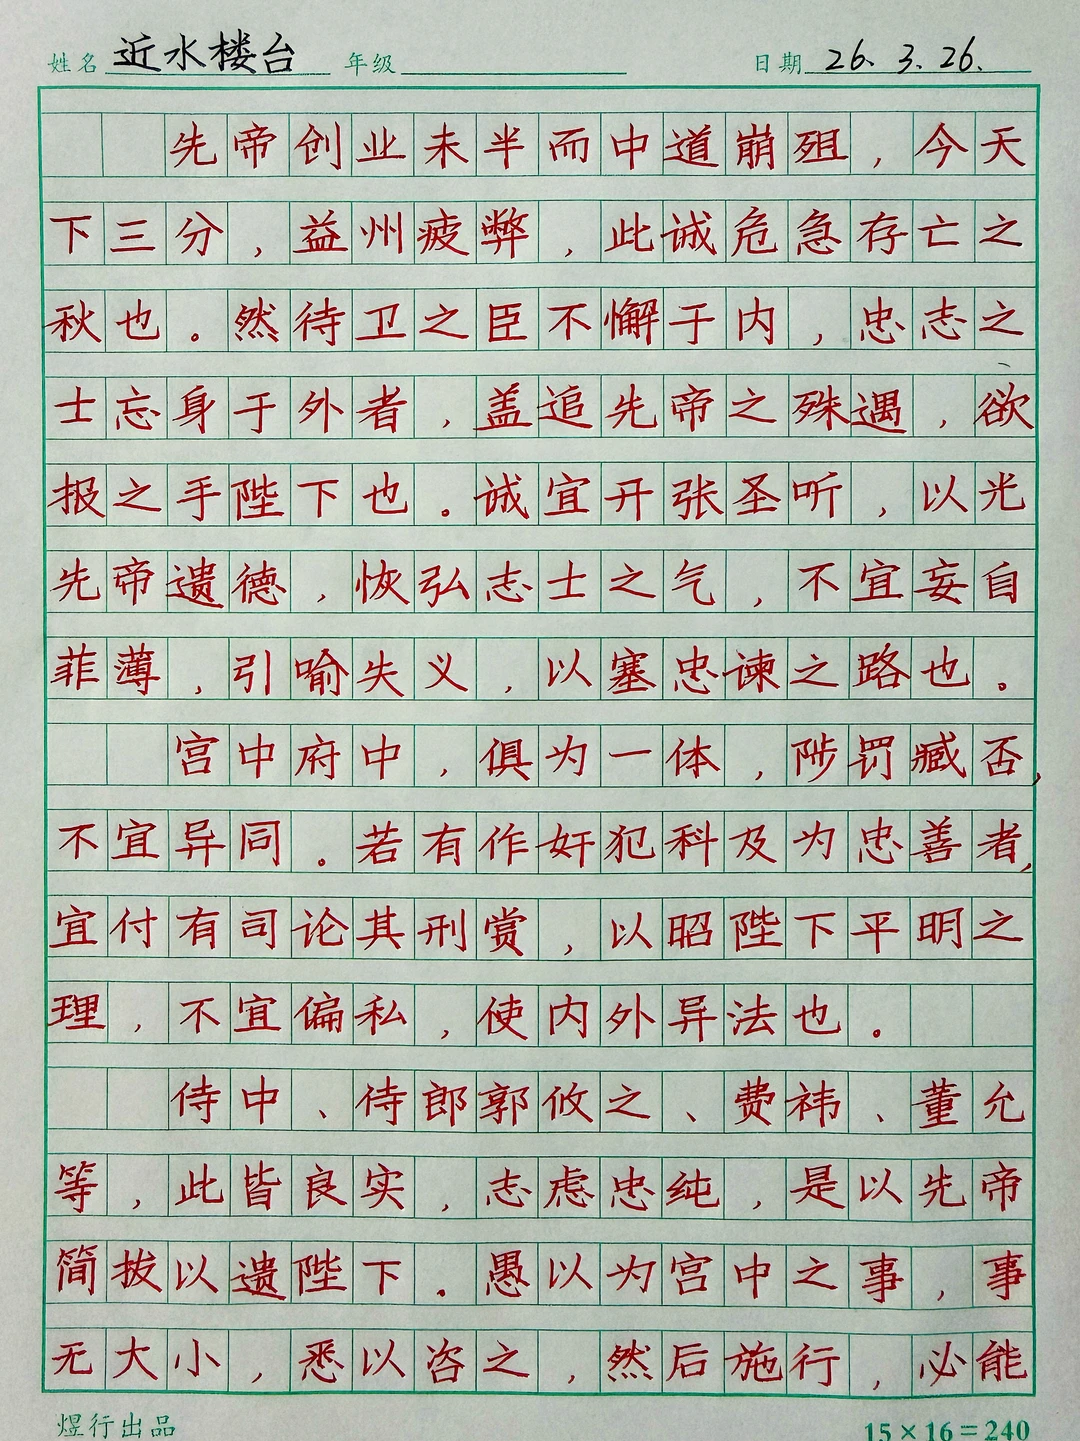 姓名 近水楼台 年级 日期 26.3.26.
先帝创业未半而中道崩殂,今天
下三分,益州疲弊,此诚危急存亡之
秋也。然待卫之臣不懈于内,忠志之
士忘身于外者,盖追先帝之殊遇,欲
报之手陛下也。诚宜开张圣听,以光
先帝遗德,恢弘志士之气,不宜妄自
菲薄,引喻失义,以塞忠谏之路也。
宫中府中,俱为一体,陟罚臧否,
不宜异同。若有作奸犯科及为忠善者,
宜付有司论其刑赏,以昭陛下平明之
理,不宜偏私,使内外异法也。
侍中、侍郎郭攸之、费祎、董允
等,此皆良实,志虑忠纯,是以先帝
简拔以遗陛下。愚以为宫中之事,事
无大小,悉以咨之,然后施行,必能
煜行出品 15×16=240